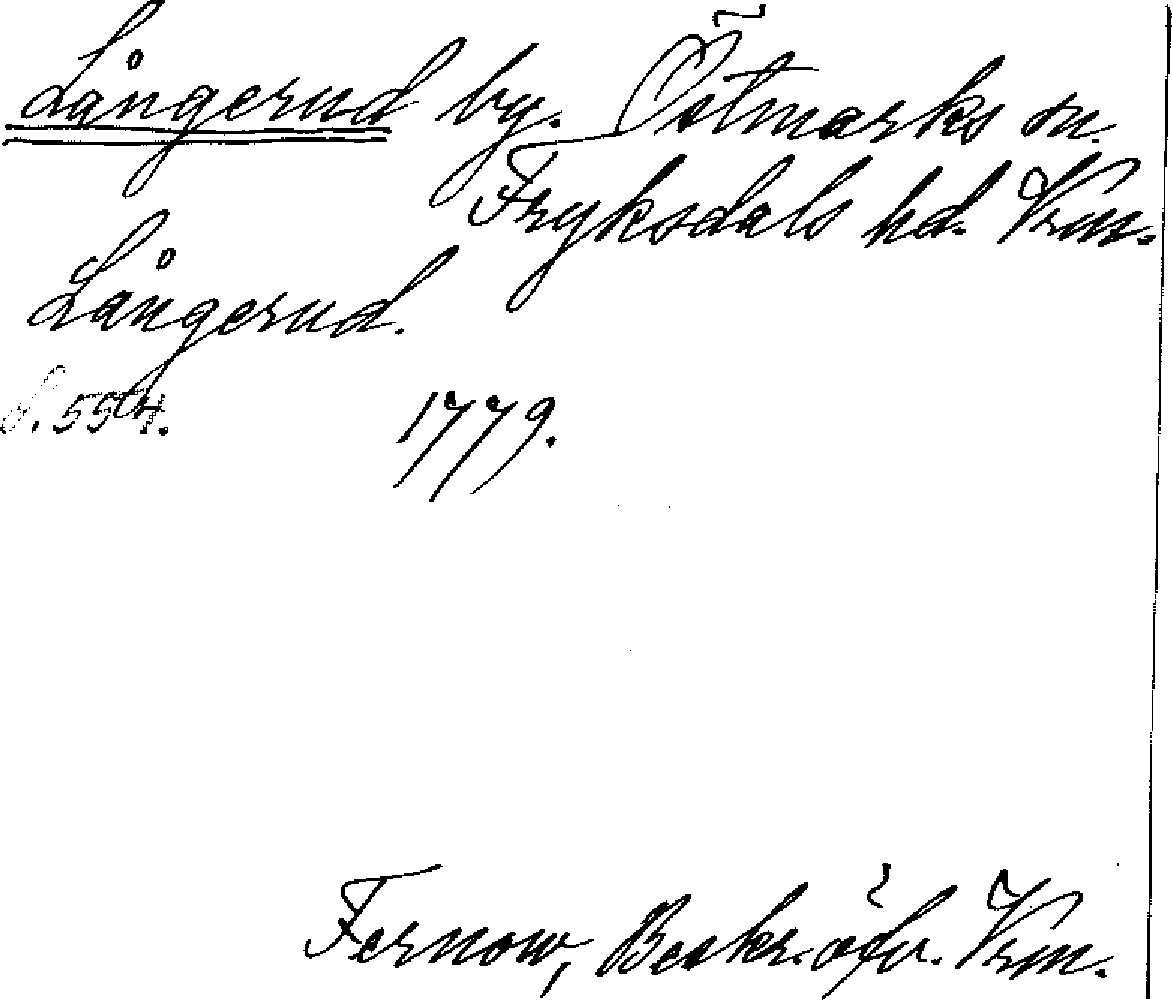 Långerud by. Östmarks sn.
Fryksdals hd. Vrm.
Långerud.
S. 554.
1779.
Fernow, Beskr. öfv. Vrm.